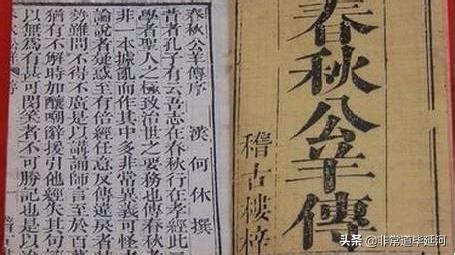 春秋公羊傳
稽古樓梓
春秋公羊傳序
漢何休撰
昔者孔子有云吾志在春秋行在孝經此
學者聖人之極致治世之要務也傳春秋
非一本據亂而作其中多非常異義可怪
論說者疑惑至有倍經任意反傳違戾者
勢雖問不得不廣是以講誦師言至於百
猶有不解時加釀嘲辭援引他經失其句
以無為有甚可閔笑者不可勝記也是以治
头条 @非常道毕延河